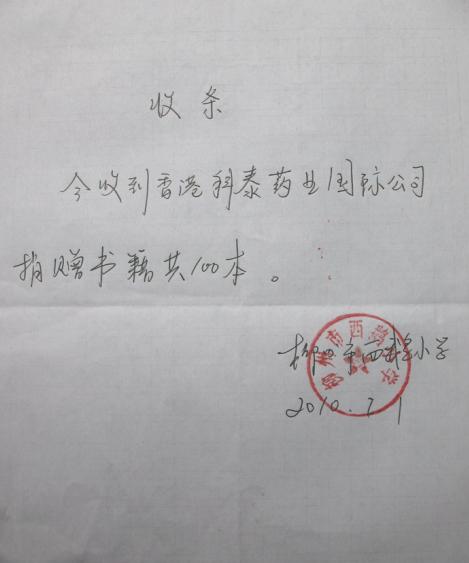 收条
今收到香港科泰药业国际公司
捐赠书籍共100本。
柳州市西鹅小学
2010.7.1
柳州市西鹅小学